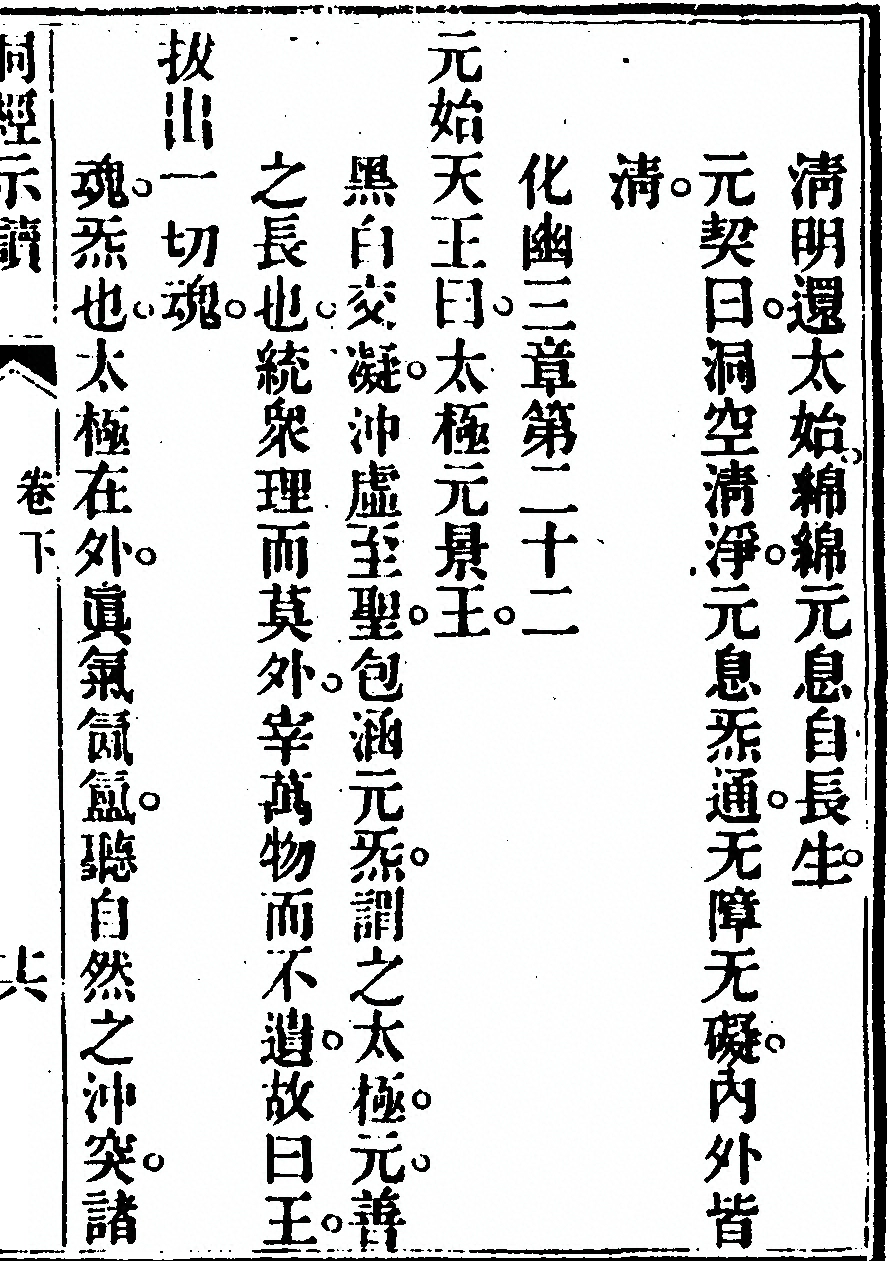 清明還太始。綿綿元息自長生。
元契曰。洞空清淨。元息炁通。无障无礙。內外皆
清。
化幽三章第二十二
元始天王曰。太極元景王。
黑白交凝。沖虛至聖。包涵元炁。謂之太極。元。善
之長也。統衆理而莫外。宰萬物而不遺。故曰王。
拔出一切魂。
魂。炁也。太極在外。眞氣氤氳。聽自然之沖突。諸
洞經示讀
卷下
十六